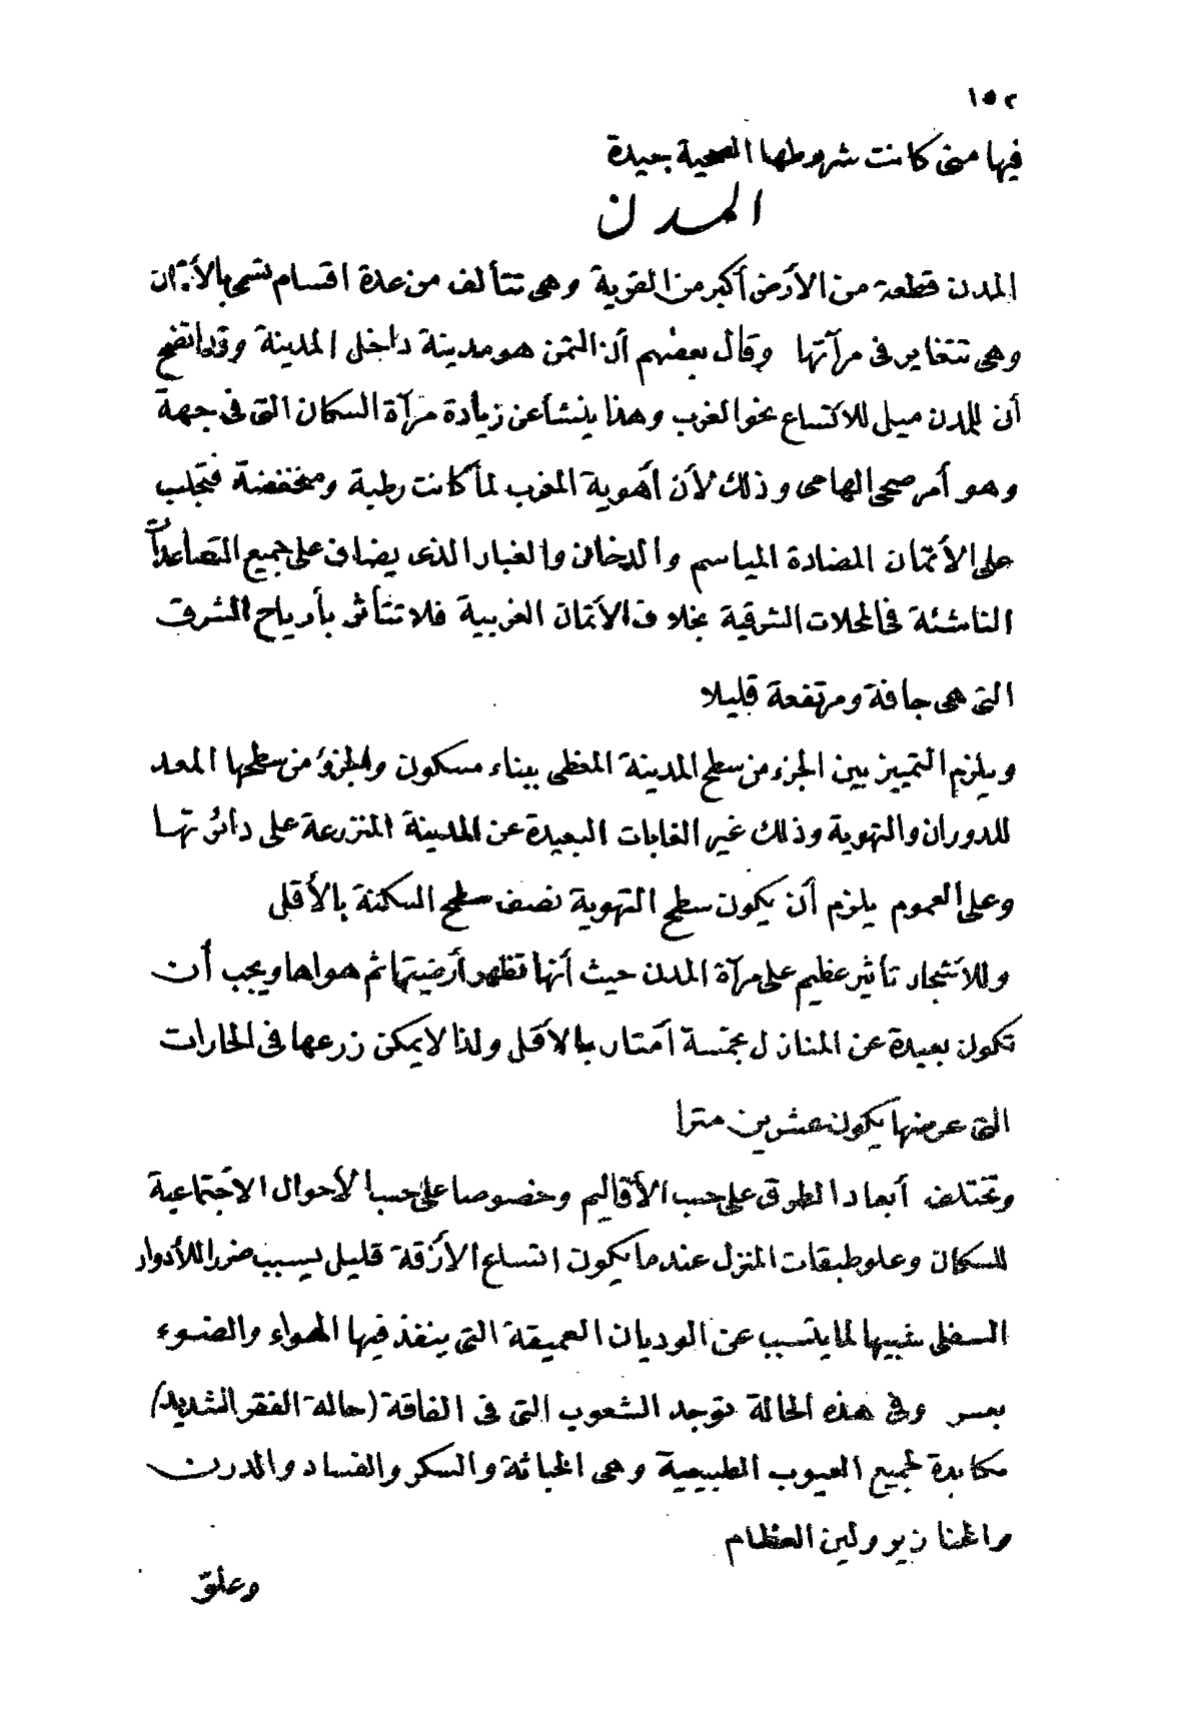 ١٥٢
فيها متى كانت شروطها الصحية جيدة
المدن
المدن قطعة من الأرض أكبر من القرية وهى تتألف من عدة اقسام تسمى بالأتمان
وهى تتغاير فى مرآتها وقال بعضهم أن التمن هو مدينة داخل المدينة وقد اتضح
أن للمدن ميل للاكتساع نحو الغرب وهذا ينشأ عن زيادة مرآة السكان التى فى جهة
وهو أمر صحى الهامى وذلك لأن أهوية المغرب لما كانت رطبة ومنخفضة فتجلب
على الأتمان المضادة المياسم والدخان والغبار الذى يضاف على جميع المتصاعدات
الناشئة فى المحلات الشرقية بخلاف الأتمان الغربية فلا تتأثر بأرياح الشرق
التى هى جافة ومرتفعة قليلا
ويلزم التمييز بين الجزء من سطح المدينة المغطى ببناء مسكون والجزؤ من سطحها المعد
للدوران والتهوية وذلك غير الغابات البعيدة عن المدينة المنزرعة على دائرتها
وعلى العموم يلزم أن يكون سطح التهوية نصف سطح السكنة بالأقل
وللاشجار تأثير عظيم على مرآة المدن حيث أنها تظهر أرضيتها ثم هواها ويجب أن
تكون بعيدة عن المنازل بخمسة أمتار بالأقل ولذا لا يمكن زرعها فى الحارات
التى عرضها يكون عشرين مترا
وتختلف أبعاد الطرق على حسب الأقاليم وخصوصا على حسب الأحوال الاجتماعية
للسكان وعلو طبقات المنزل عندما يكون اتساع الأزقة قليل يسبب ضررا للأدوار
السفلى شبيها لما يتسبب عن الوديان العميقة التى ينفذ فيها الهواء والضوء
بعسر وفى هذه الحالة توجد الشعوب التى فى الفاقة (حالة الفقر الشديد)
مكابدة لجميع العيوب الطبيعية وهى الخباثة والسكر والفساد والدرن
والخنازير ولين العظام
وعلق